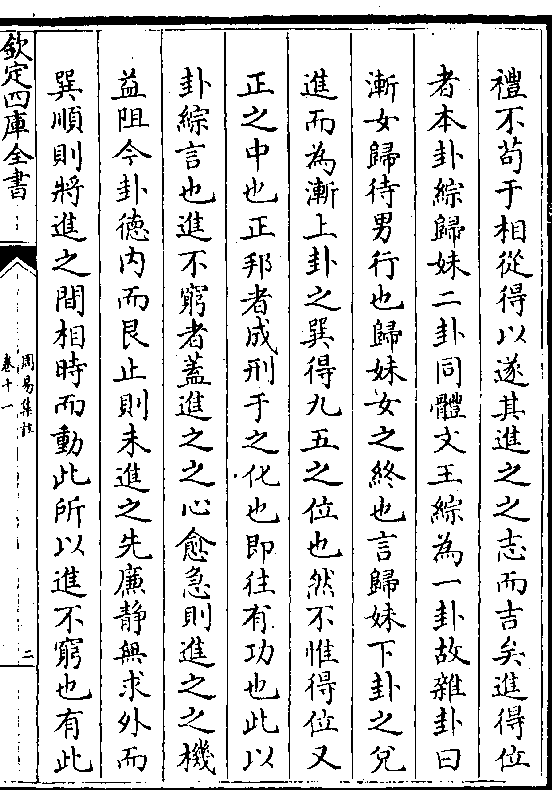 禮不苟于相從得以遂其進之之志而吉矣進得位
者本卦綜歸妹二卦同體文王綜為一卦故雜卦曰
漸女歸待男行也歸妹女之終也言歸妹下卦之兌
進而為漸上卦之巽得九五之位也然不惟得位又
正之中也正邦者成刑于之化也即往有功也此以
卦綜言也進不窮者蓋進之之心愈急則進之之機
益阻今卦德内而艮止則未進之先廉静無求外而
巽順則將進之間相時而動此所以進不窮也有此
欽定四庫全書
周易集註
卷十一
二